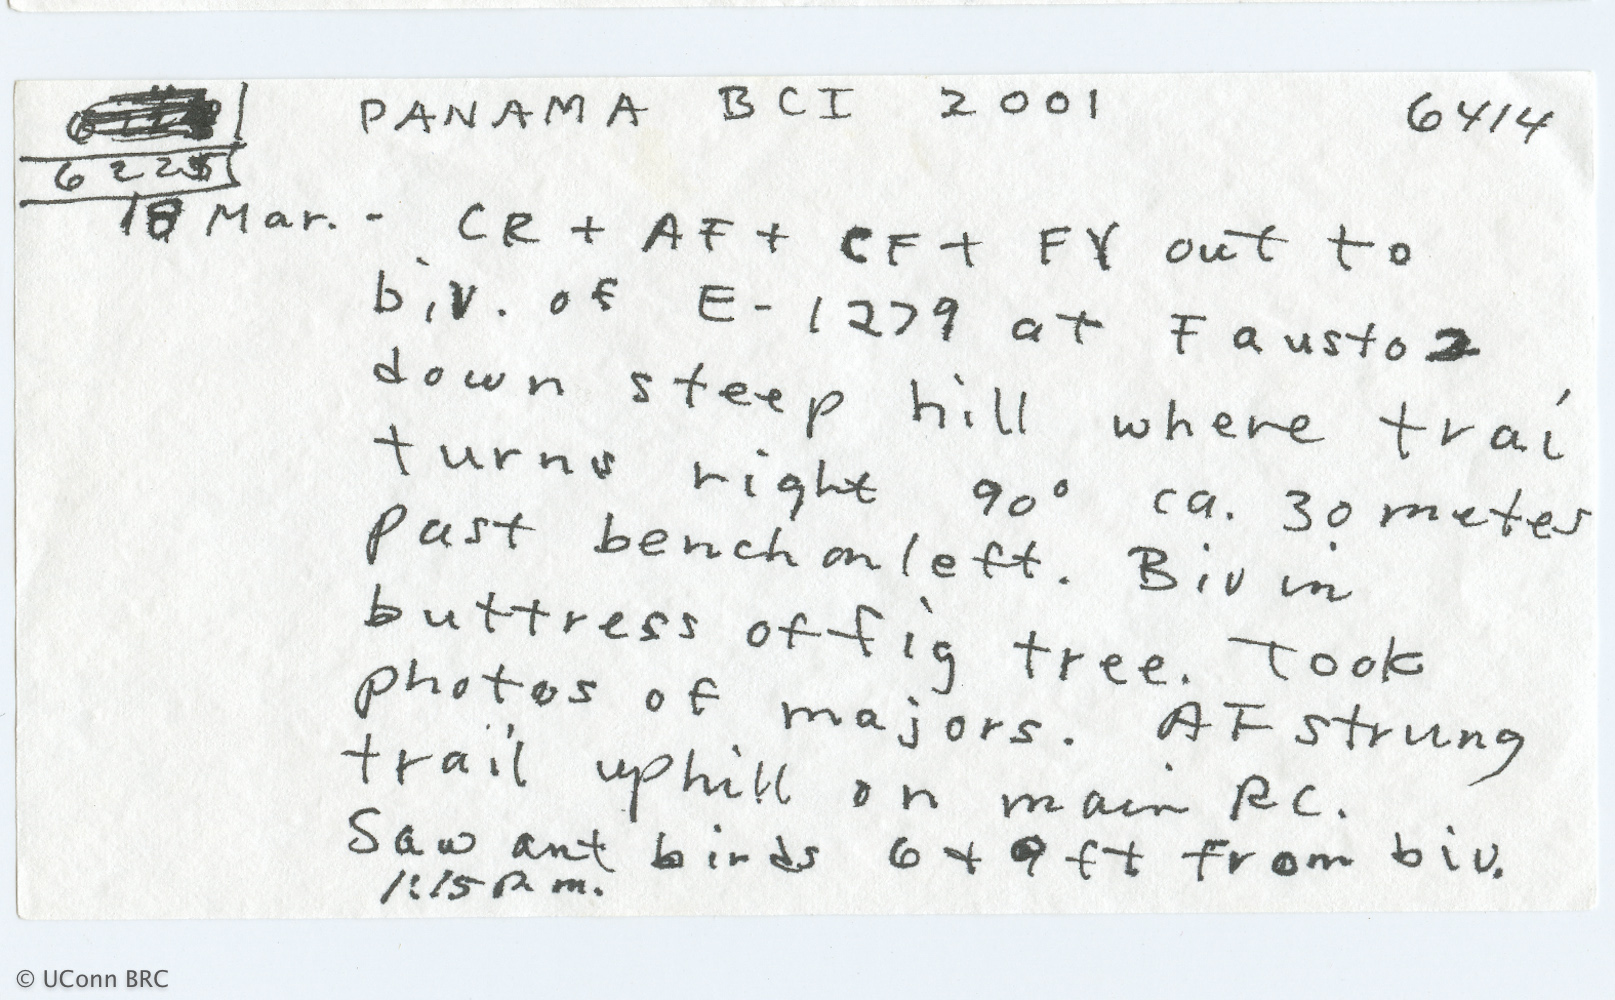 PANAMA BCI 2001 6414
6225
18 Mar. - CR + AF + CF + FV out to
biv. of E-1279 at Fausto 2
down steep hill where trai
turns right 90° ca. 30 metes
past bench on left. Biv in
buttress of fig tree. Took
photos of majors. AF strung
trail uphill on main RC.
Saw ant birds 6 + 9 ft from biv.
1:15 P.m.
© UConn BRC